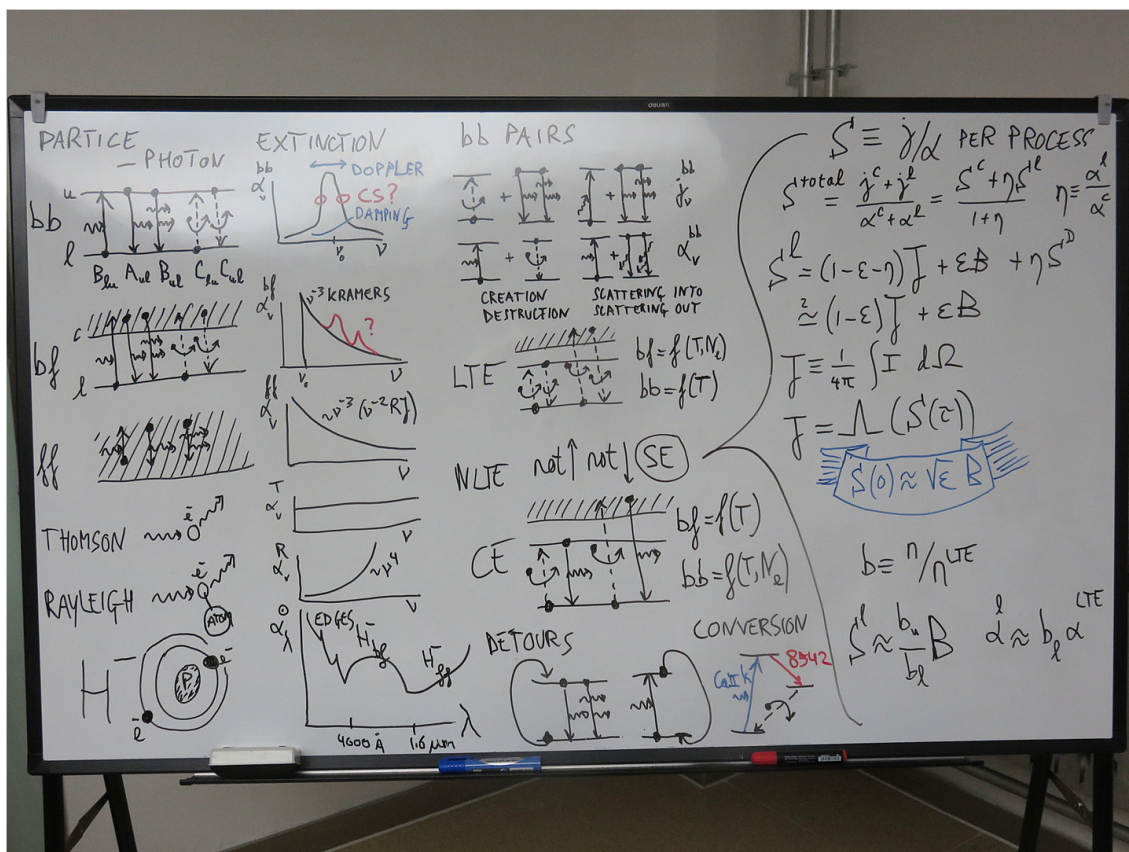 deli
PARTICE
– PHOTON
u
bb
l
B_lu A_ul B_ul C_lu C_ul
c
bf
l
ff
THOMSON
e⁻
RAYLEIGH
e⁻
ATOM
H⁻
P
e⁻
e⁻
EXTINCTION
α_ν^bb
DOPPLER
CS?
DAMPING
ν₀
ν
α_ν^bf
ν⁻³ KRAMERS
?
ν₀
ν
α_ν^ff
~ν⁻³ (ν⁻² RJ)
ν
α_ν^T
ν
α_ν^R
~ν⁴
ν
α_λ^⊙
EDGES
H⁻_bf
H⁻_ff
λ
4000 Å
1.6 μm
bb PAIRS
j_ν^bb
α_ν^bb
CREATION
DESTRUCTION
SCATTERING INTO
SCATTERING OUT
LTE
bf = f(T, N_e)
bb = f(T)
NLTE
not ↑ not ↓ SE
CE
bf = f(T)
bb = f(T, N_e)
DETOURS
CONVERSION
CaII K
8542
S ≡ j/α PER PROCESS
S^total = (j^c + j^l)/(α^c + α^l) = (S^c + ηS^l)/(1+η) η ≡ α^l/α^c
S^l = (1-ε-η)J̄ + εB + ηS^D
≈? (1-ε)J̄ + εB
J ≡ 1/4π ∫ I dΩ
J = Λ(S(τ))
S(0) ≈ √ε B
b ≡ n/n^LTE
S^l ≈ b_u/b_l B α^l ≈ b_l α^LTE